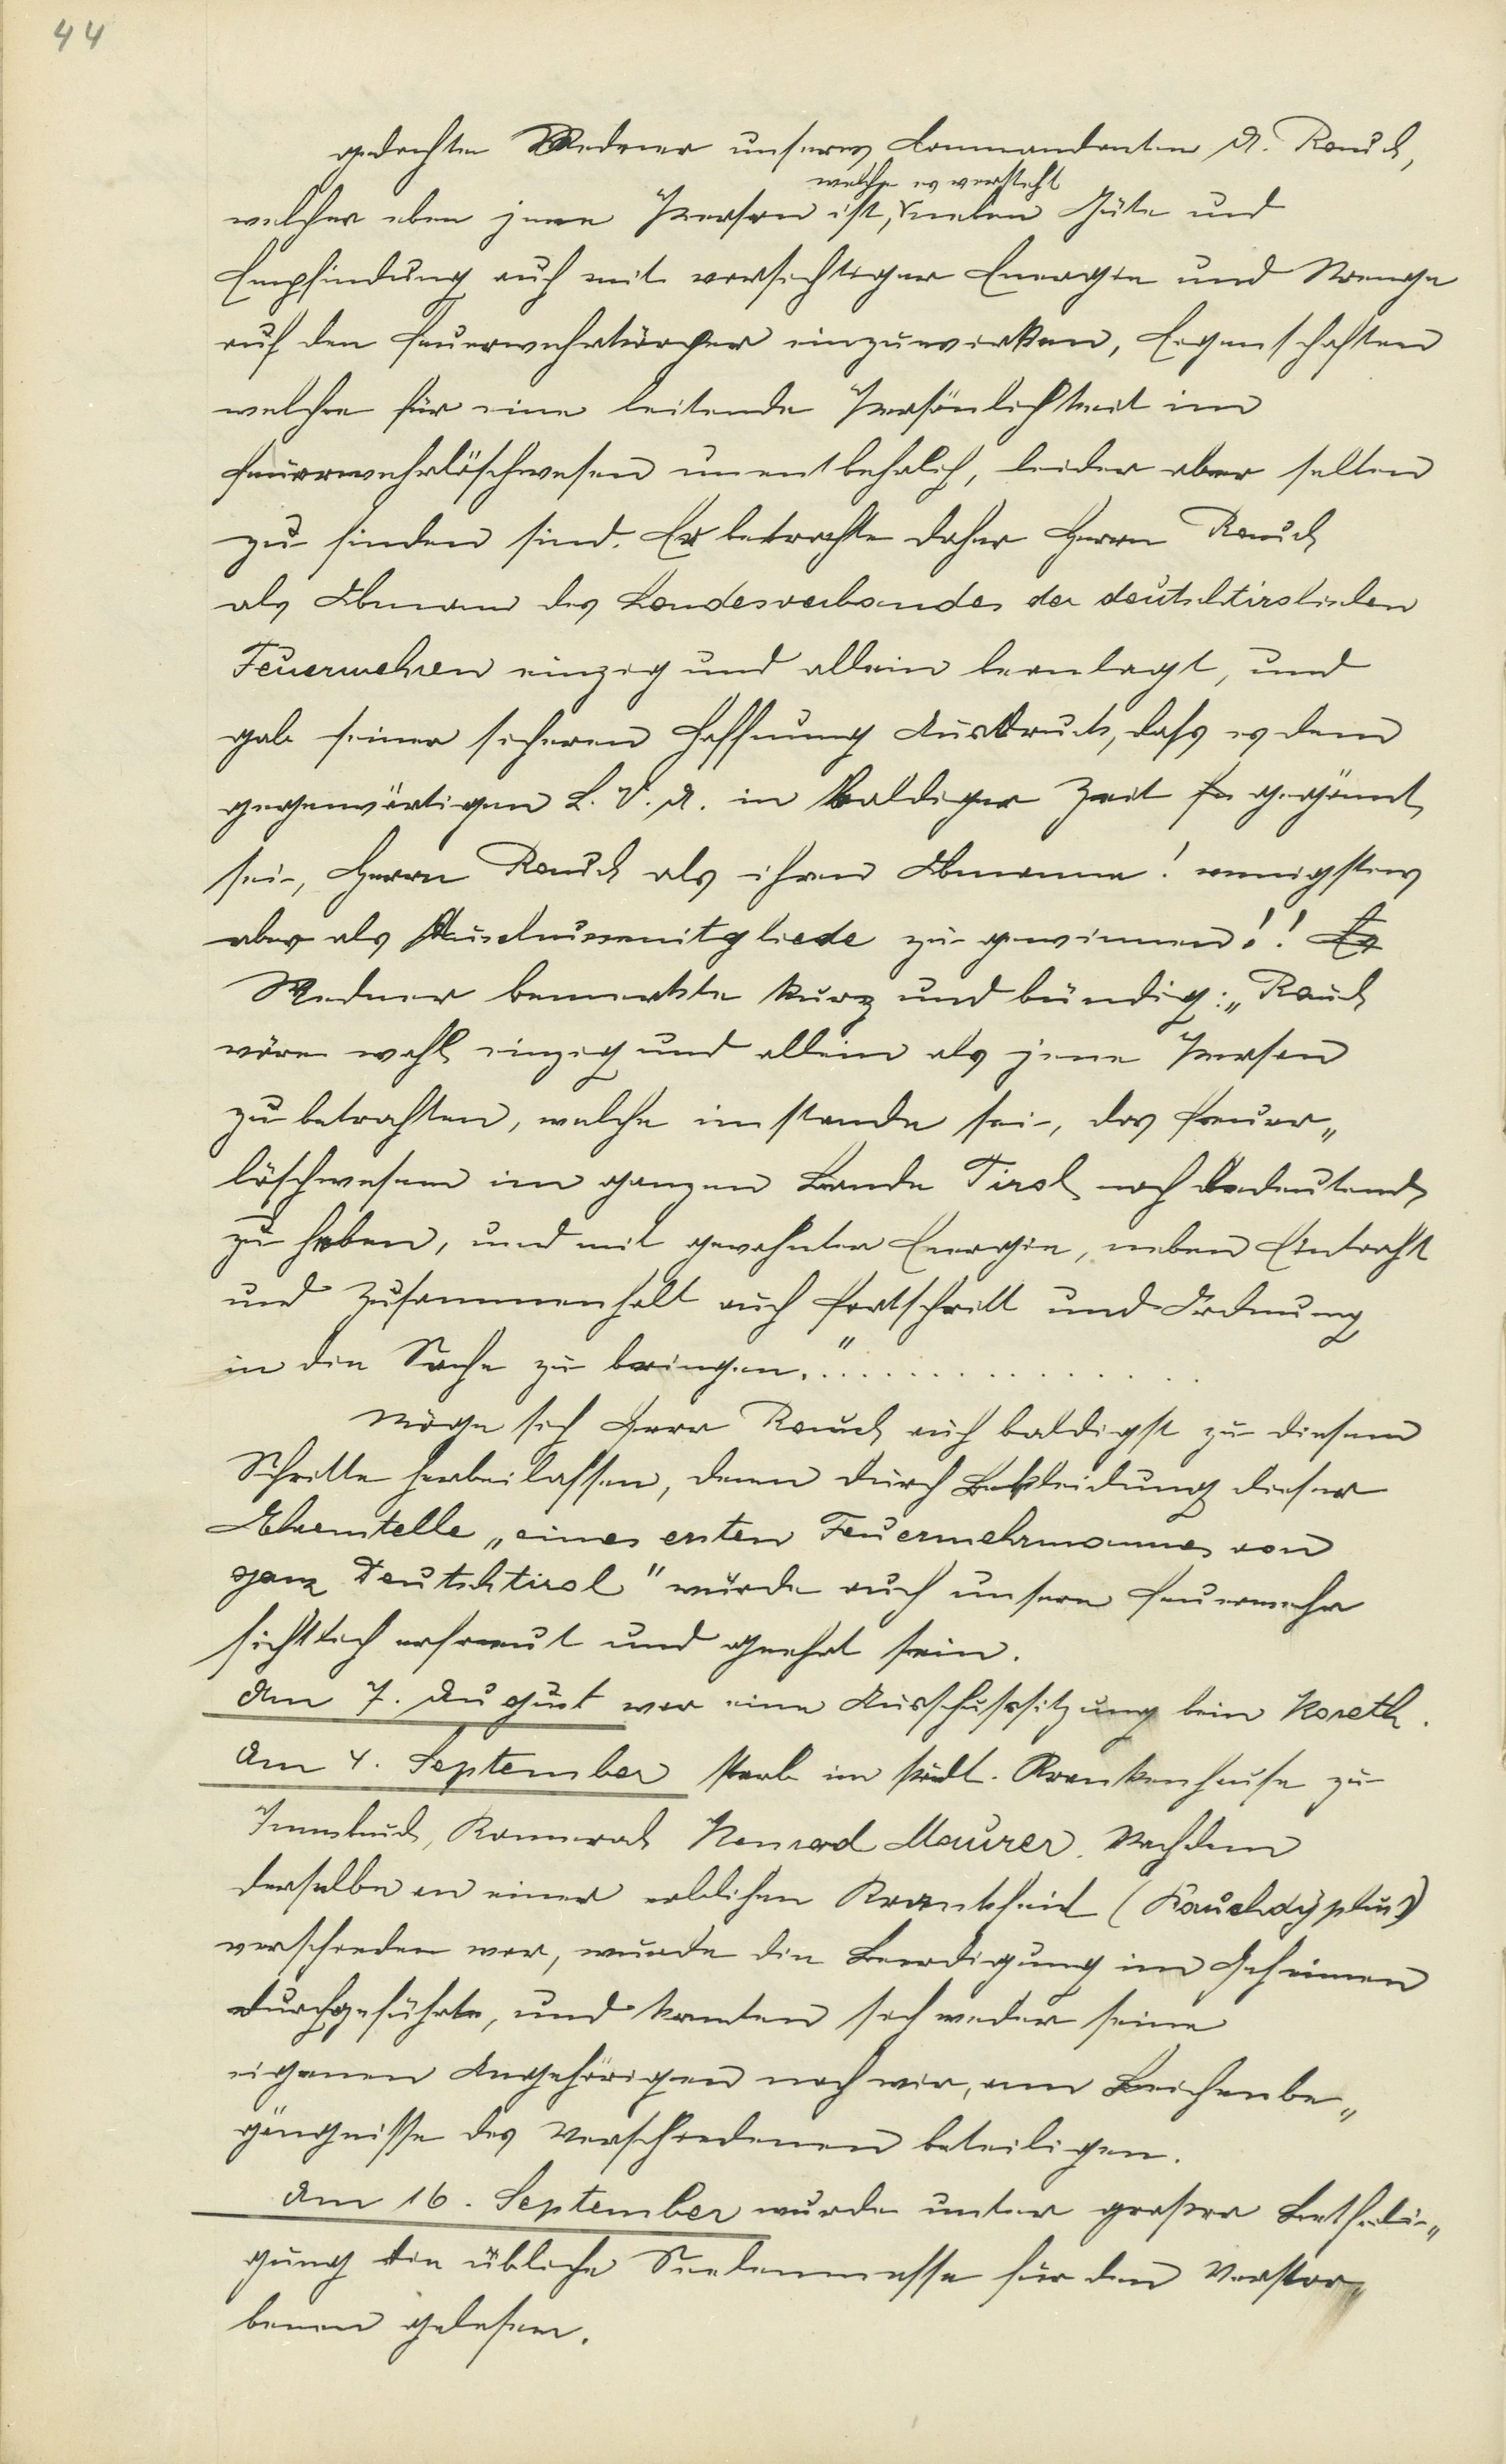 44
gedachte Redner unseres Commandanten A. Rauch,
welche es versteht
welcher eben jene Person ist, neben Güte und
Empfindung auch mit vorsichtiger Energie und Strenge
auf den Feuerwehrkörper einzuwirken, Eigenschaften
welche für eine leitende Persönlichkeit im
Feuerwehrlöschwesen unentbehrlich, leider aber selten
zu finden sind. Er betrachte daher Herrn Rauch
als Obmann des Landesverbandes der deutschtirolischen
Feuerwehren einzig und allein beanlagt, und
gab seiner sicheren Hoffnung Ausdruck, dass es dem
gegenwärtigen L. V. A. in baldiger Zeit gegönnt
sei, Herrn Rauch als ihren Obmanne! wenigstens
aber als Ausschussmitgliede zu gewinnen!! Er
Redner bemerkte kurz und bündig: „Rauch
wäre wohl einzig und allein als jene Person
zu betrachten, welche imstande sei, das Feuer„
löschwesen im ganzen Lande Tirol noch bedeutend
zu heben, und mit gewohnter Energie, neben Eintracht
und Zusammenhalt auch Fortschritt und Ordnung
in die Sache zu bringen." . . . . . . . . . . . . . .
Möge sich Herr Rauch auch baldigst zu diesem
Schritte herbeilassen, denn durch Bekleidung dieser
Ehrenstelle „eines ersten Feuerwehrmannes von
ganz Deutschtirol" würde auch unsere Feuerwehr
sichtlich erfreut und geehrt sein.
Am 7. August war eine Ausschusssitzung beim Koreth.
Am 4. September starb im städt. Krankenhause zu
Innsbruck, Kamerad Konrad Maurer. Nachdem
derselbe an einer erblichen Krankheit (Bauchdyphus)
verschieden war, wurde die Beerdigung im Geheimen
durchgeführt, und konnten sich weder seine
eigenen Angehörigen noch wir, am Leichenbe„
gängnisse des Verschiedenen beteiligen.
Am 16. September wurde unter grosser Betheili„
gung die übliche Seelenmesse für den Verstor„
benen gelesen.